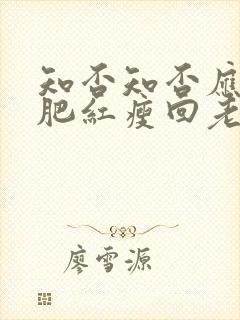 知否知否應
肥紅瘦回老
廖雪源